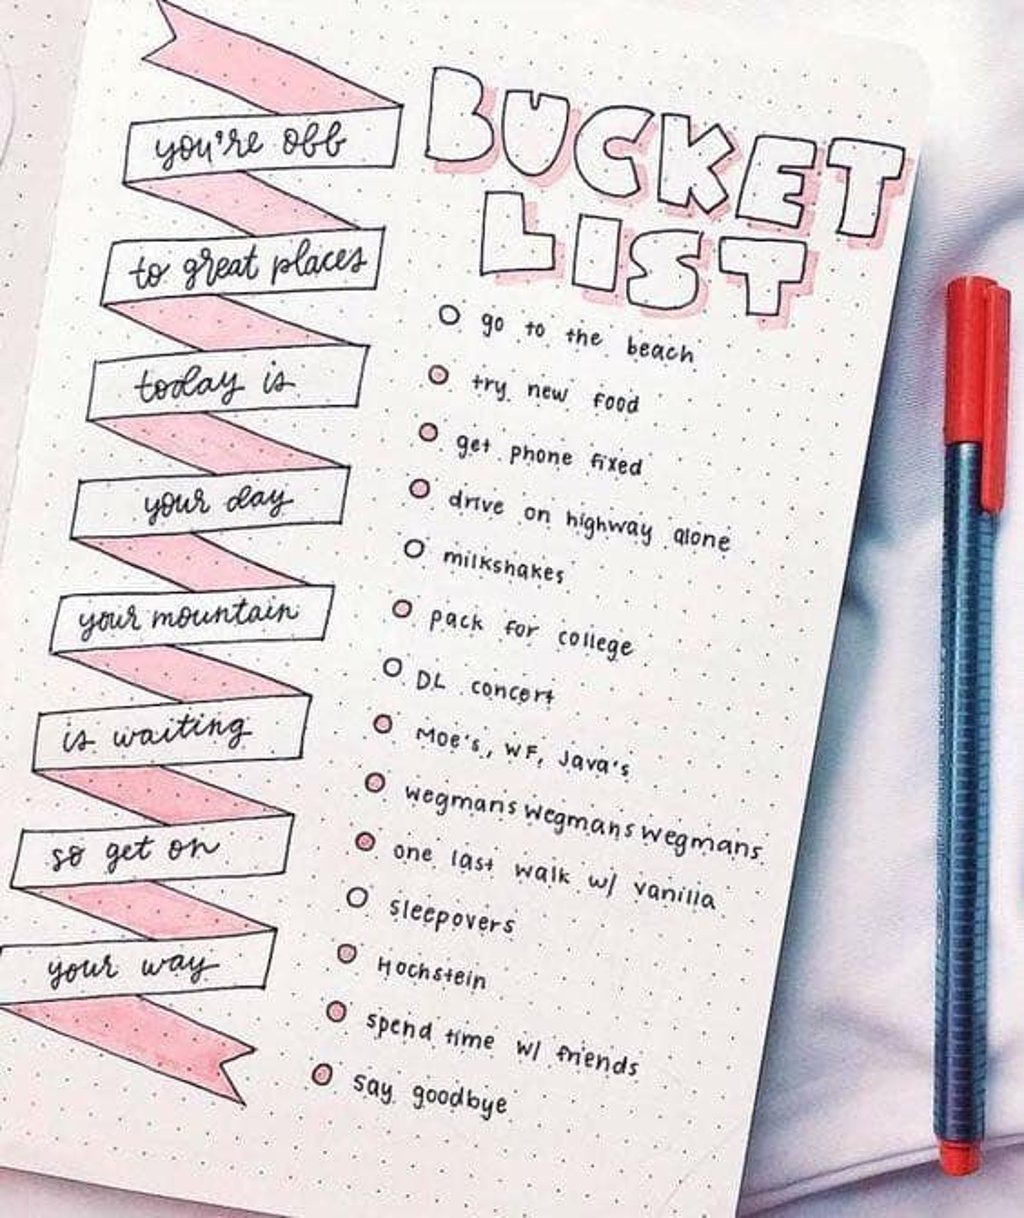 you're off
to great places
today is
your day
your mountain
is waiting
so get on
your way
BUCKET
LIST
go to the beach
try new food
get phone fixed
drive on highway alone
milkshakes
pack for college
DL concert
Moe's, WF, Java's
wegmans wegmans wegmans
one last walk w/ vanilla
sleepovers
Hochstein
spend time w/ friends
say goodbye